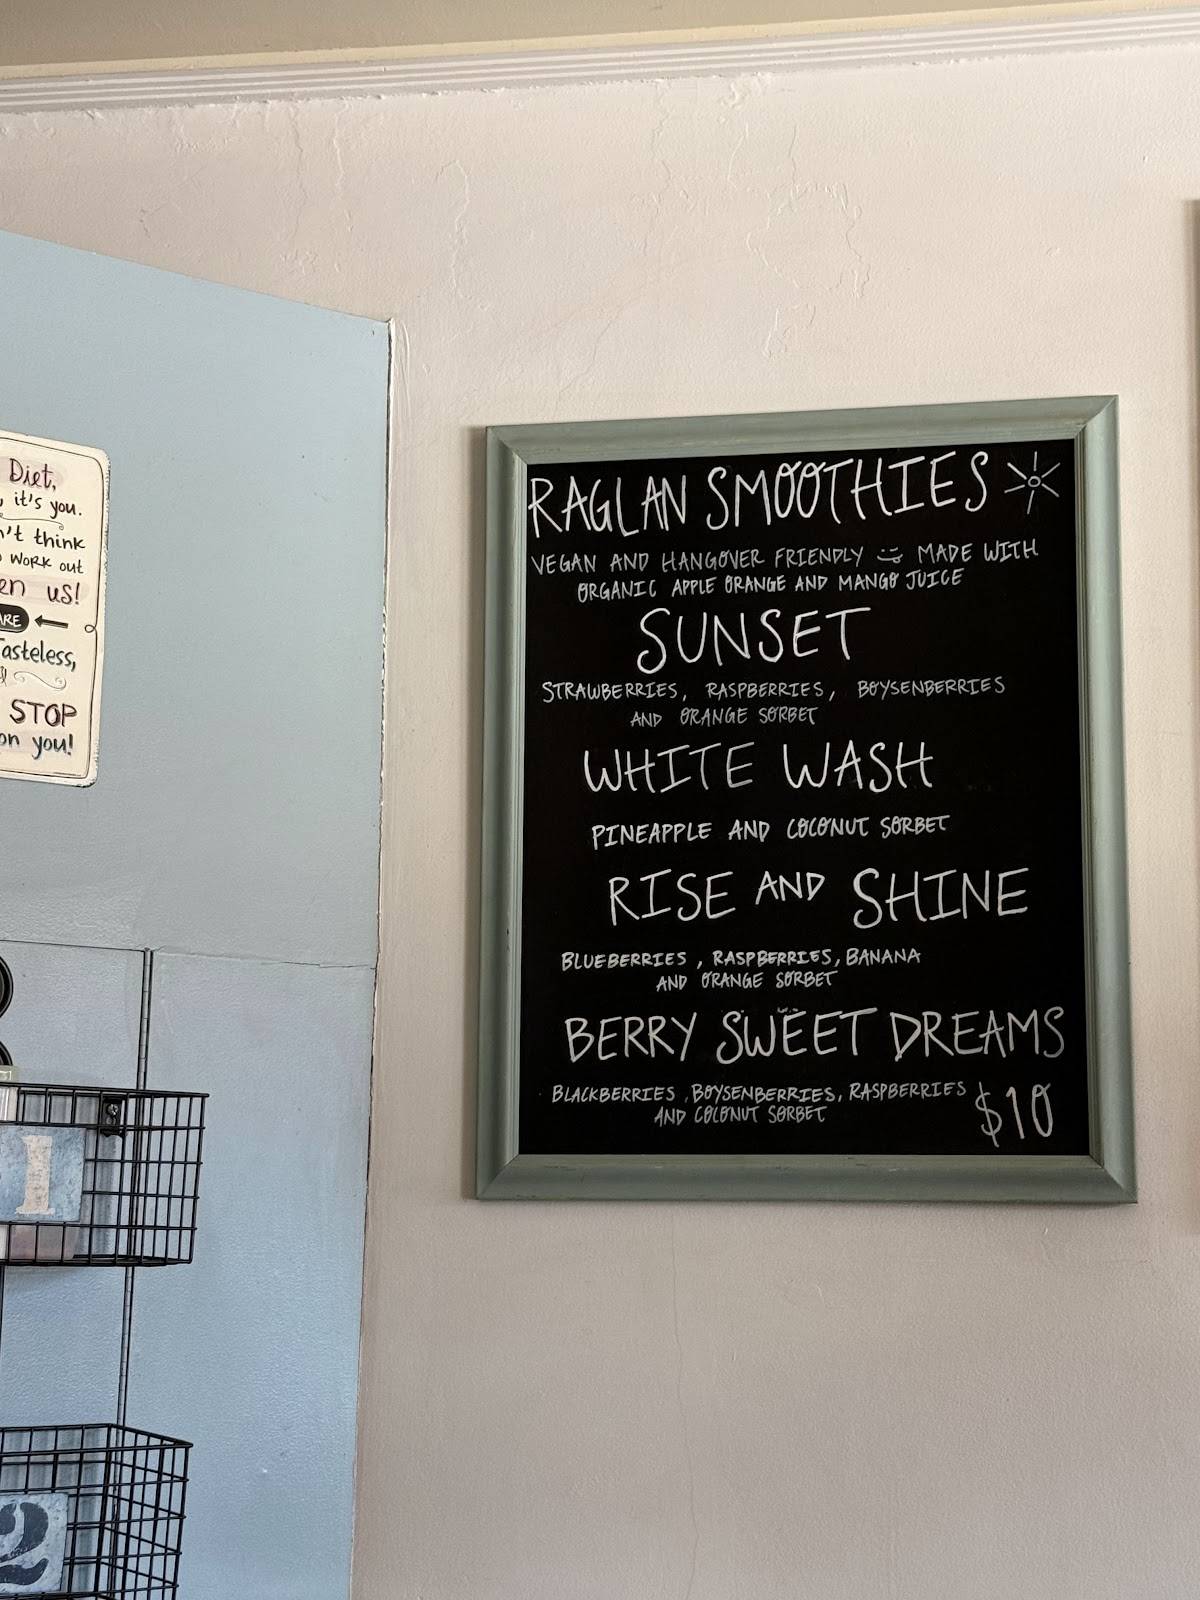 Diet,
, it's you.
't think
work out
en us!
ARE
Tasteless,
STOP
on you!
1
2
RAGLAN SMOOTHIES
VEGAN AND HANGOVER FRIENDLY MADE WITH
ORGANIC APPLE ORANGE AND MANGO JUICE
SUNSET
STRAWBERRIES, RASPBERRIES, BOYSENBERRIES
AND ORANGE SORBET
WHITE WASH
PINEAPPLE AND COCONUT SORBET
RISE AND SHINE
BLUEBERRIES, RASPBERRIES, BANANA
AND ORANGE SORBET
BERRY SWEET DREAMS
BLACKBERRIES, BOYSENBERRIES, RASPBERRIES
AND COCONUT SORBET
$10